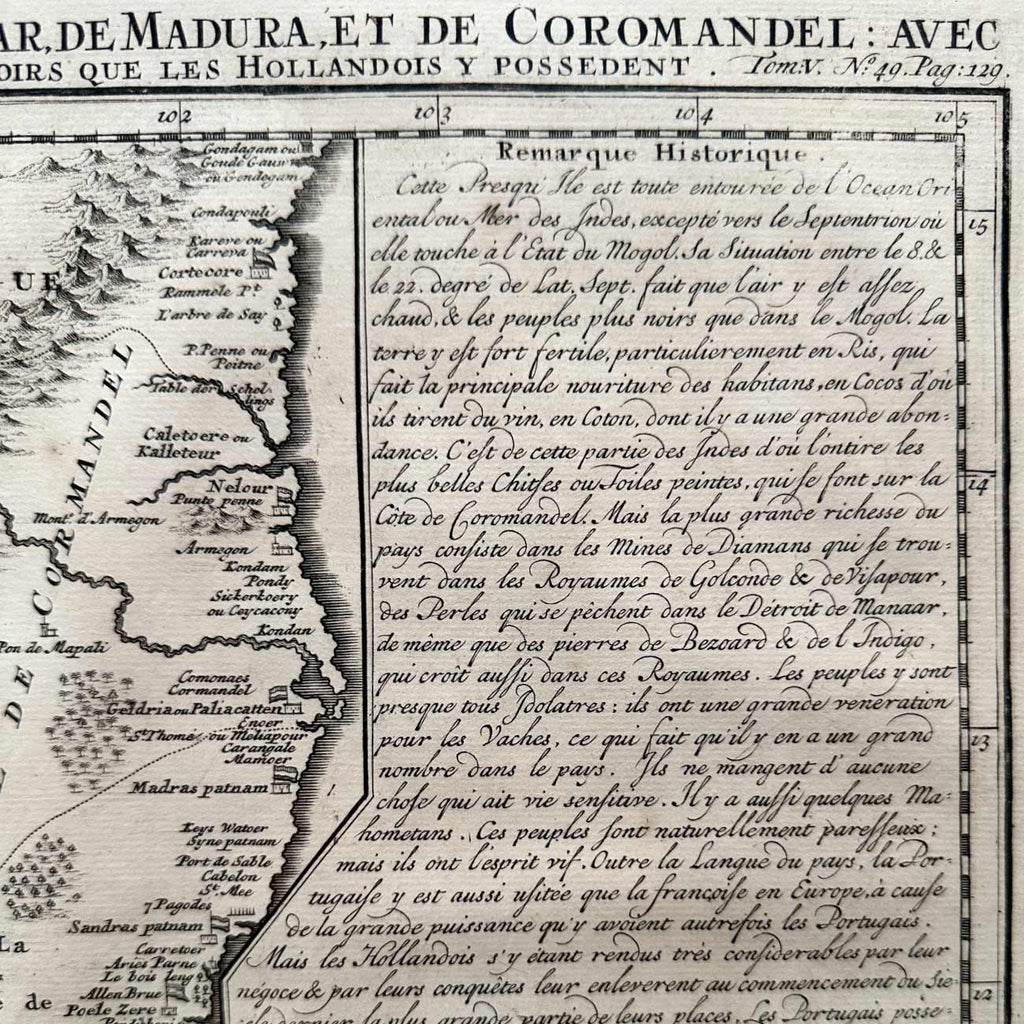 AR, DE MADURA, ET DE COROMANDEL: AVEC
OIRS QUE LES HOLLANDOIS Y POSSEDENT. Tom: V. No. 49. Pag: 129.
102 103 104 105
Gondagam ou
Goude Gauw
ou Gendegam
Condapouli
Kareve ou
Carreva
Cortecore
Rammele Pt.
L'arbre de Say
UE
P. Penne ou
Peitne
Table der Schel
lings
Caletoere ou
Kalleteur
Nelour
Punte penne
Mont. d'Armegon
Armegon
Kondam
Pondy
Sickerkoery
ou Coycacony
Kondan
Pon de Mapali
DE COROMANDEL
Comonaes
Cormandel
Geldria ou Paliacatten
Enoer
St. Thome ou Meliapour
Carangale
Mamoer
Madras patnam
Keys Watoer
Syne patnam
Port de Sable
Cabelon
St. Mee
7 Pagodes
Sandras patnam
Carretoer
Aries Parne
Le bois long
Allen Brue
Poele Zere
La
e de
Remarque Historique.
Cette Presqu'Ile est toute entourée de l'Ocean Ori
ental ou Mer des Indes, excepté vers le Septentrion où
elle touche à l'Etat du Mogol. Sa Situation entre le 8. &
le 22. degré de Lat. Sept. fait que l'air y est assez
chaud, & les peuples plus noirs que dans le Mogol. La
terre y est fort fertile, particulierement en Ris, qui
fait la principale nouriture des habitans, en Cocos d'où
ils tirent du vin, en Coton, dont il y a une grande abon-
dance. C'est de cette partie des Indes d'où l'on tire les
plus belles Chitses ou Toiles peintes, qui se font sur la
Côte de Coromandel. Mais la plus grande richesse du
pays consiste dans les Mines de Diamans qui se trou-
vent dans les Royaumes de Golconde & de Visapour,
des Perles qui se pêchent dans le Détroit de Manaar,
de même que des pierres de Bezoard & de l'Indigo,
qui croît aussi dans ces Royaumes. Les peuples y sont
presque tous Idolatres: ils ont une grande veneration
pour les Vaches, ce qui fait qu'il y en a un grand
nombre dans le pays. Ils ne mangent d'aucune
chose qui ait vie sensitive. Il y a aussi quelques Ma-
hometans. Ces peuples sont naturellement paresseux;
mais ils ont l'esprit vif. Outre la Langue du pays, la Por-
tugaise y est aussi usitée que la françoise en Europe, à cause
de la grande puissance qu'y avoient autrefois les Portugais.
Mais les Hollandois s'y étant rendus très considerables par leur
négoce & par leurs conquêtes leur enleverent au commencement du Sie-
cle dernier la plus grande partie de leurs places. Les Portugais posse-
15
14
13
12